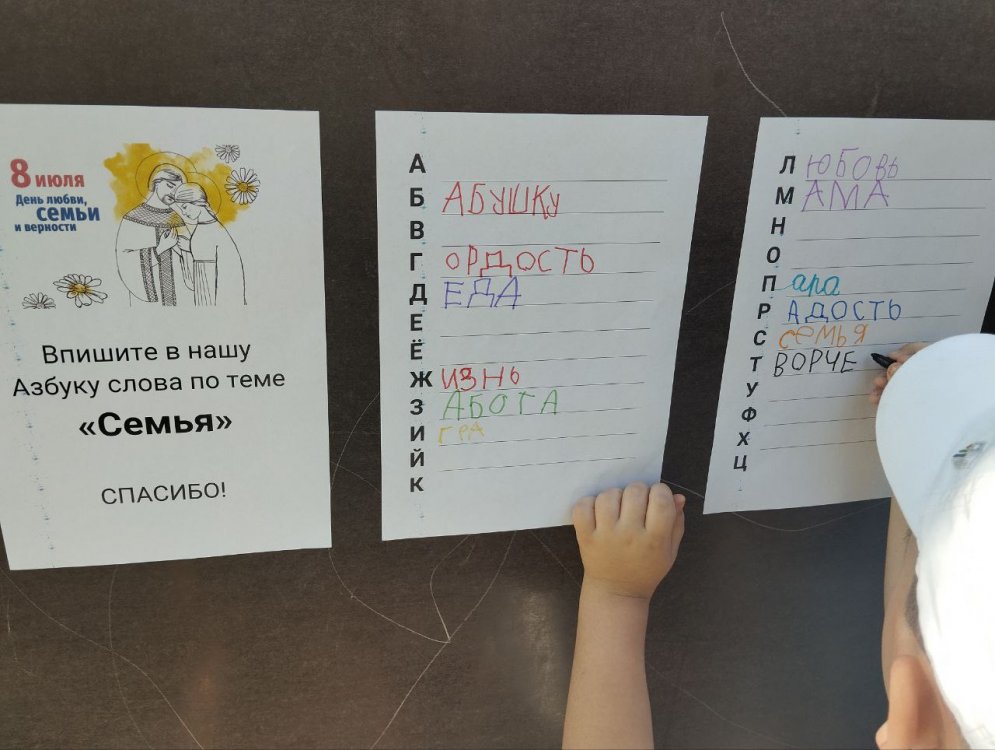 8 июля
День любви,
семьи
и верности
Впишите в нашу
Азбуку слова по теме
«Семья»
СПАСИБО!
А
Б АБУШКУ
В
Г ОРДОСТЬ
Д ЕДА
Е
Ё
Ж ИЗНЬ
З АБОТА
И ГРА
Й
К
Л ЮБОВЬ
М АМА
Н
О
П ара
Р АДОСТЬ
С СЕМЬЯ
Т ВОРЧЕ
У
Ф
Х
Ц